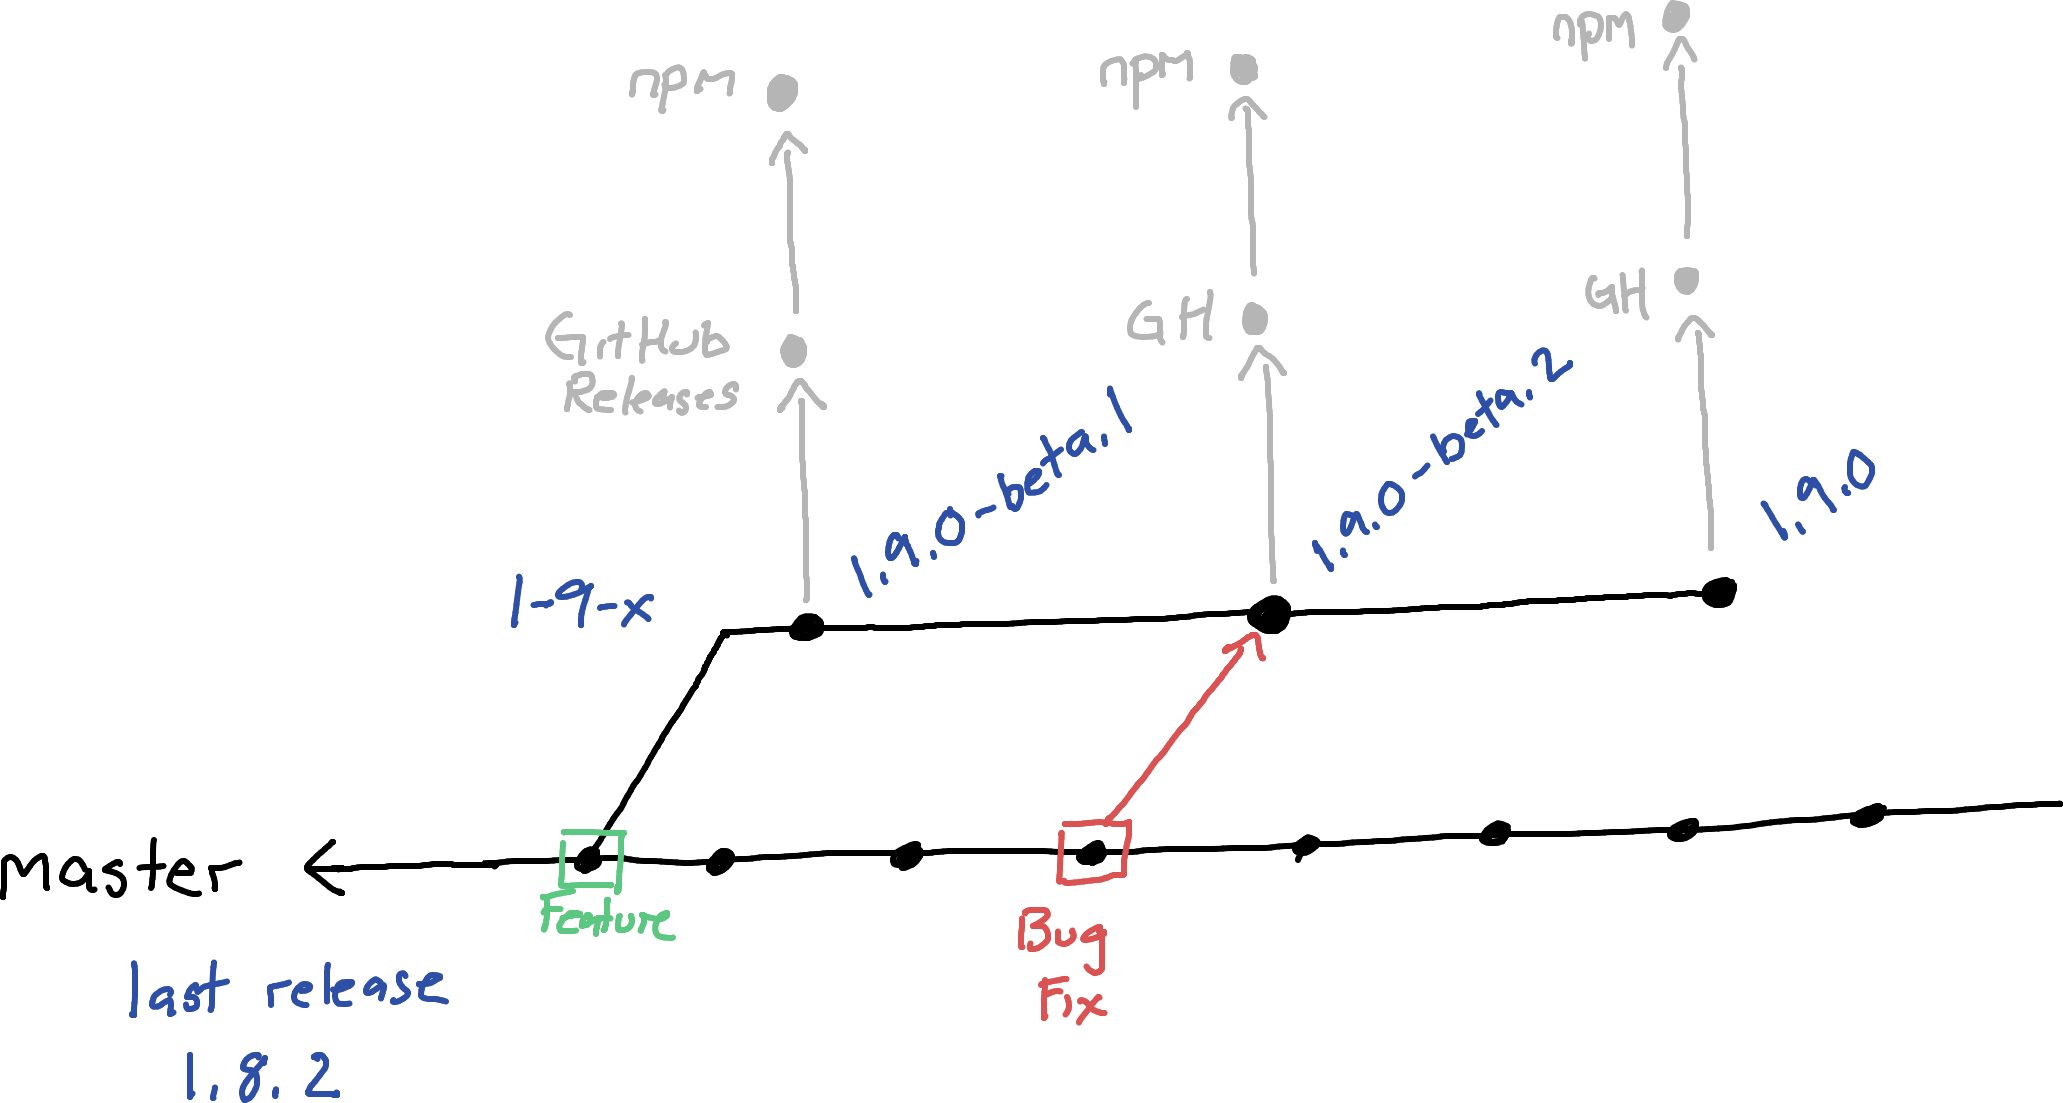 npm
npm
npm
GitHub
Releases
GH
GH
1.9.0-beta.1
1.9.0-beta.2
1.9.0
1-9-x
Master
Feature
Bug
Fix
last release
1.8.2